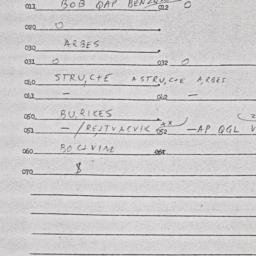 011 BOB QAP BENZ 012 0
020 0
030 ARBES
031 0 032 0
040 STRU,CTE ASTRU,CTE ARBES
041 — 042 —
050 BU,RICES
051 — 052 — AP QGL V
060 061
070 $